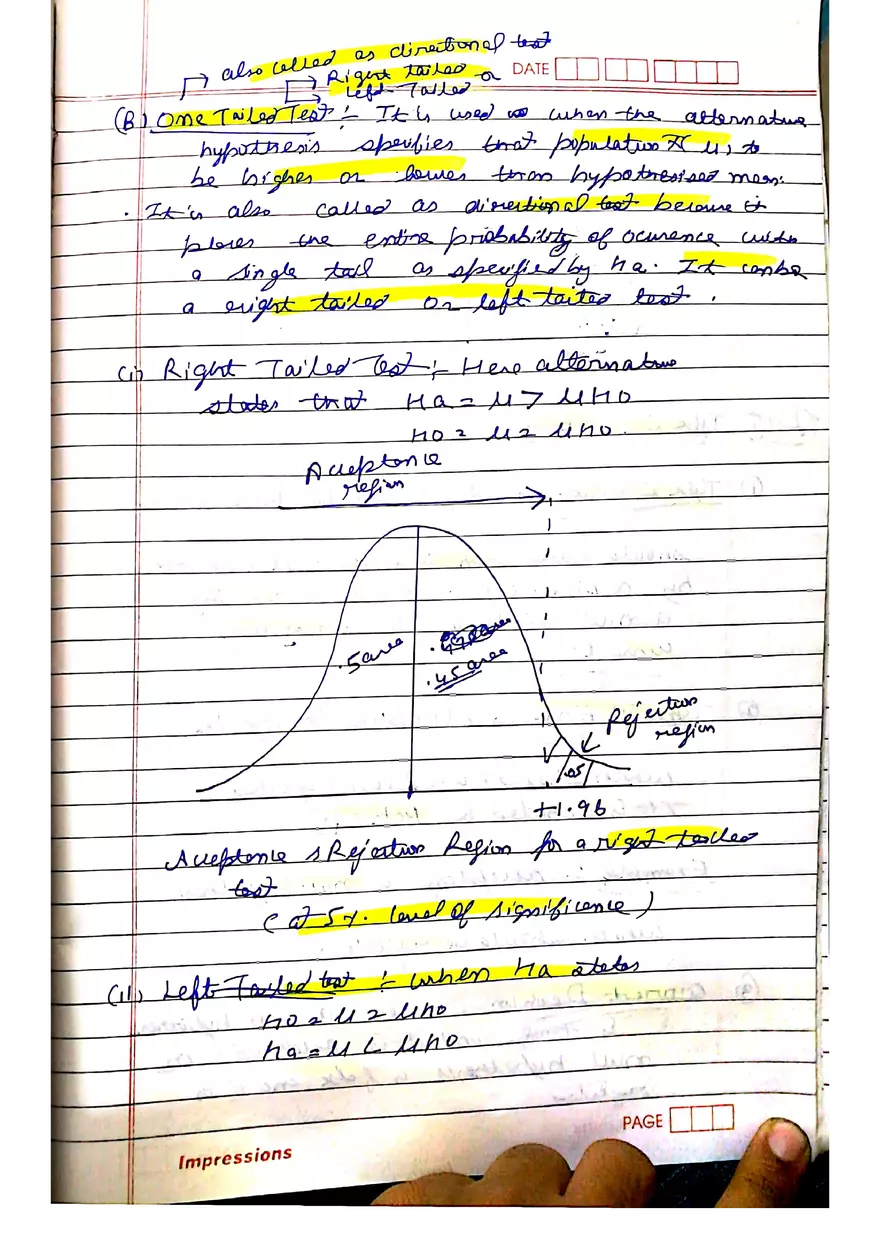 also called as directional test
Right tailed or
Left Tailed
DATE
(B) One Tailed Test :- It is used when the alternative
hypothesis specifies that population μ, to
be higher or lower than hypothesised mean.
. It is also called as directional test because it
places the entire probability of ocurence with
a single tail as specified by ha. It can be
a right tailed or left tailed test.
(i) Right Tailed Test :- Here alternative
states that Ha = μ > μH0
H0 = μ = μH0.
Acceptance
region
.5 area
.45 area
Rejection
region
.05
+1.96
Acceptance & Rejection Region for a right tailed
test
(at 5%. level of significance)
(ii) Left Tailed test :- when Ha states
H0 = μ = μH0
ha = μ < μH0
PAGE
Impressions